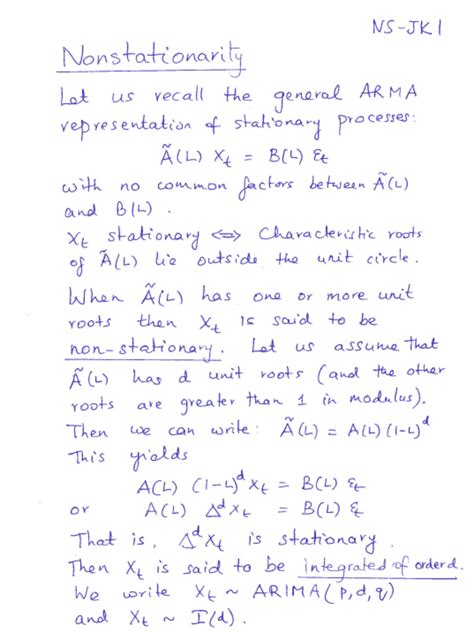 NS-JK1
Nonstationarity
Let us recall the general ARMA
representation of stationary processes:
Ã(L) Xₜ = B(L) εₜ
with no common factors between Ã(L)
and B(L).
Xₜ stationary ⇔ Characteristic roots
of Ã(L) lie outside the unit circle.
When Ã(L) has one or more unit
roots then Xₜ is said to be
non-stationary. Let us assume that
Ã(L) has d unit roots (and the other
roots are greater than 1 in modulus).
Then we can write: Ã(L) = A(L)(1-L)ᵈ
This yields
A(L) (1-L)ᵈ Xₜ = B(L) εₜ
or A(L) Δᵈ Xₜ = B(L) εₜ
That is, Δᵈ Xₜ is stationary.
Then Xₜ is said to be integrated of order d.
We write Xₜ ~ ARIMA(p,d,q)
and Xₜ ~ I(d).